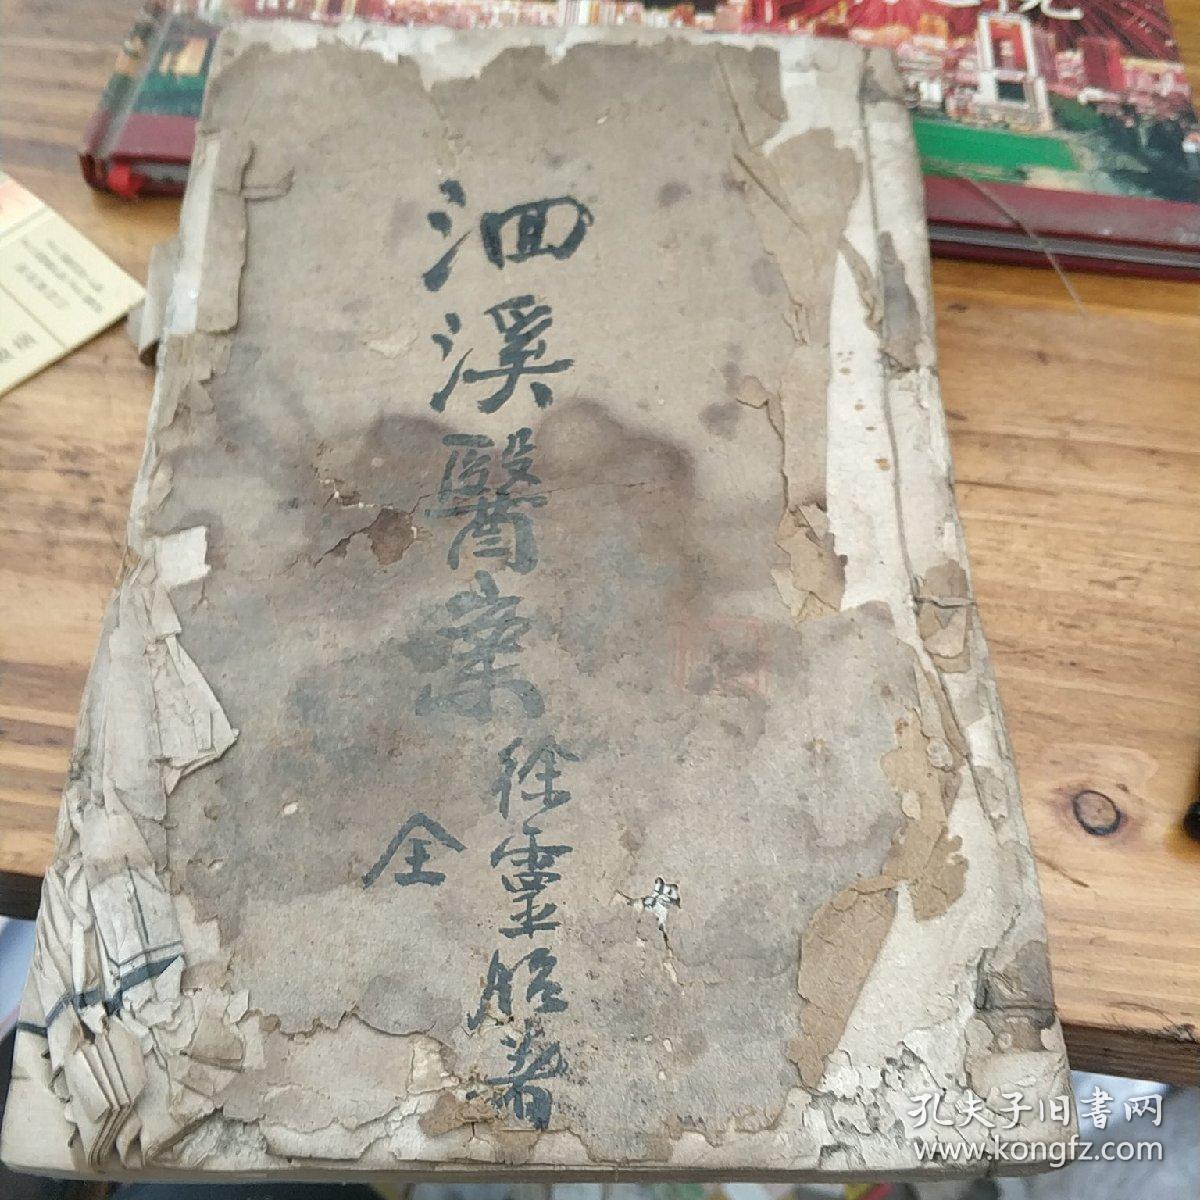 洄溪醫案
徐靈胎著
全
孔夫子旧書网
www.kongfz.com